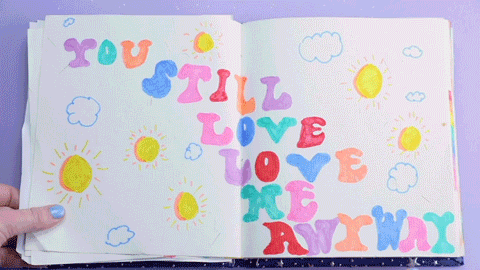 YOU
STILL
LOVE
LOVE
ME
ANYWAY